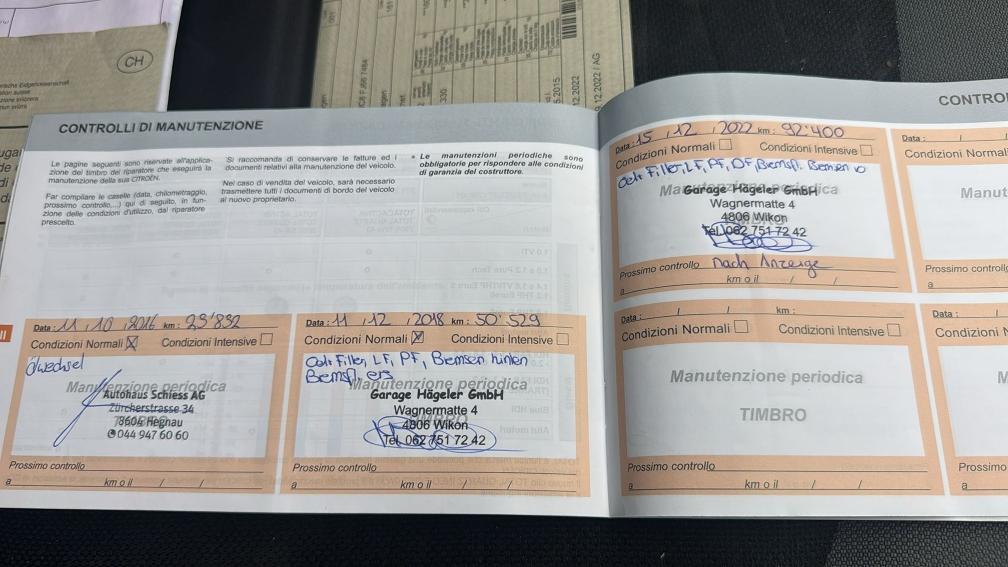 CH
CONTROLLI DI MANUTENZIONE
Le pagine seguenti sono riservate all'applica-
zione del timbro del riparatore che eseguirà la
manutenzione della sua CITROËN.
Far compilare le caselle (data, chilometraggio,
prossimo controllo,...) qui di seguito, in fun-
zione delle condizioni d'utilizzo, dal riparatore
prescelto.
Si raccomanda di conservare le fatture ed i
documenti relativi alla manutenzione del veicolo.
Nel caso di vendita del veicolo, sarà necessario
trasmettere tutti i documenti di bordo del veicolo
al nuovo proprietario.
• Le manutenzioni periodiche sono
obbligatorie per rispondere alle condizioni
di garanzia del costruttore.
Data : 11 / 10 / 2016 km : 23'832
Condizioni Normali X Condizioni Intensive
Ölwechsel
Manutenzione periodica
Autohaus Schiess AG
Zürcherstrasse 34
8604 Hegnau
044 947 60 60
Prossimo controllo
a km o il / /
Data : 11 / 12 / 2018 km : 50'529
Condizioni Normali X Condizioni Intensive
Oel+Filter, LF, PF, Bremsen hinten
Bremsfl, ers
Manutenzione periodica
Garage Hägeler GmbH
Wagnermatte 4
4806 Wikon
Tel. 062 751 72 42
Prossimo controllo
a km o il / /
CONTRO
Data : 15 / 12 / 2022 km : 92'400
Condizioni Normali Condizioni Intensive
Oel+Filter, LF, PF, Bremsfl.
Manutenzione periodica
Garage Hägeler GmbH
Wagnermatte 4
4806 Wikon
TIMBRO
Tel. 062 751 72 42
Prossimo controllo nach Anzeige
a km o il / /
Data : / / km :
Condizioni Normali Condizioni Intensive
Manutenzione periodica
TIMBRO
Prossimo controllo
a km o il / /
Data : /
Condizioni Normali
Manut
Prossimo controllo
a
Data : /
Condizioni N
Prossimo
a